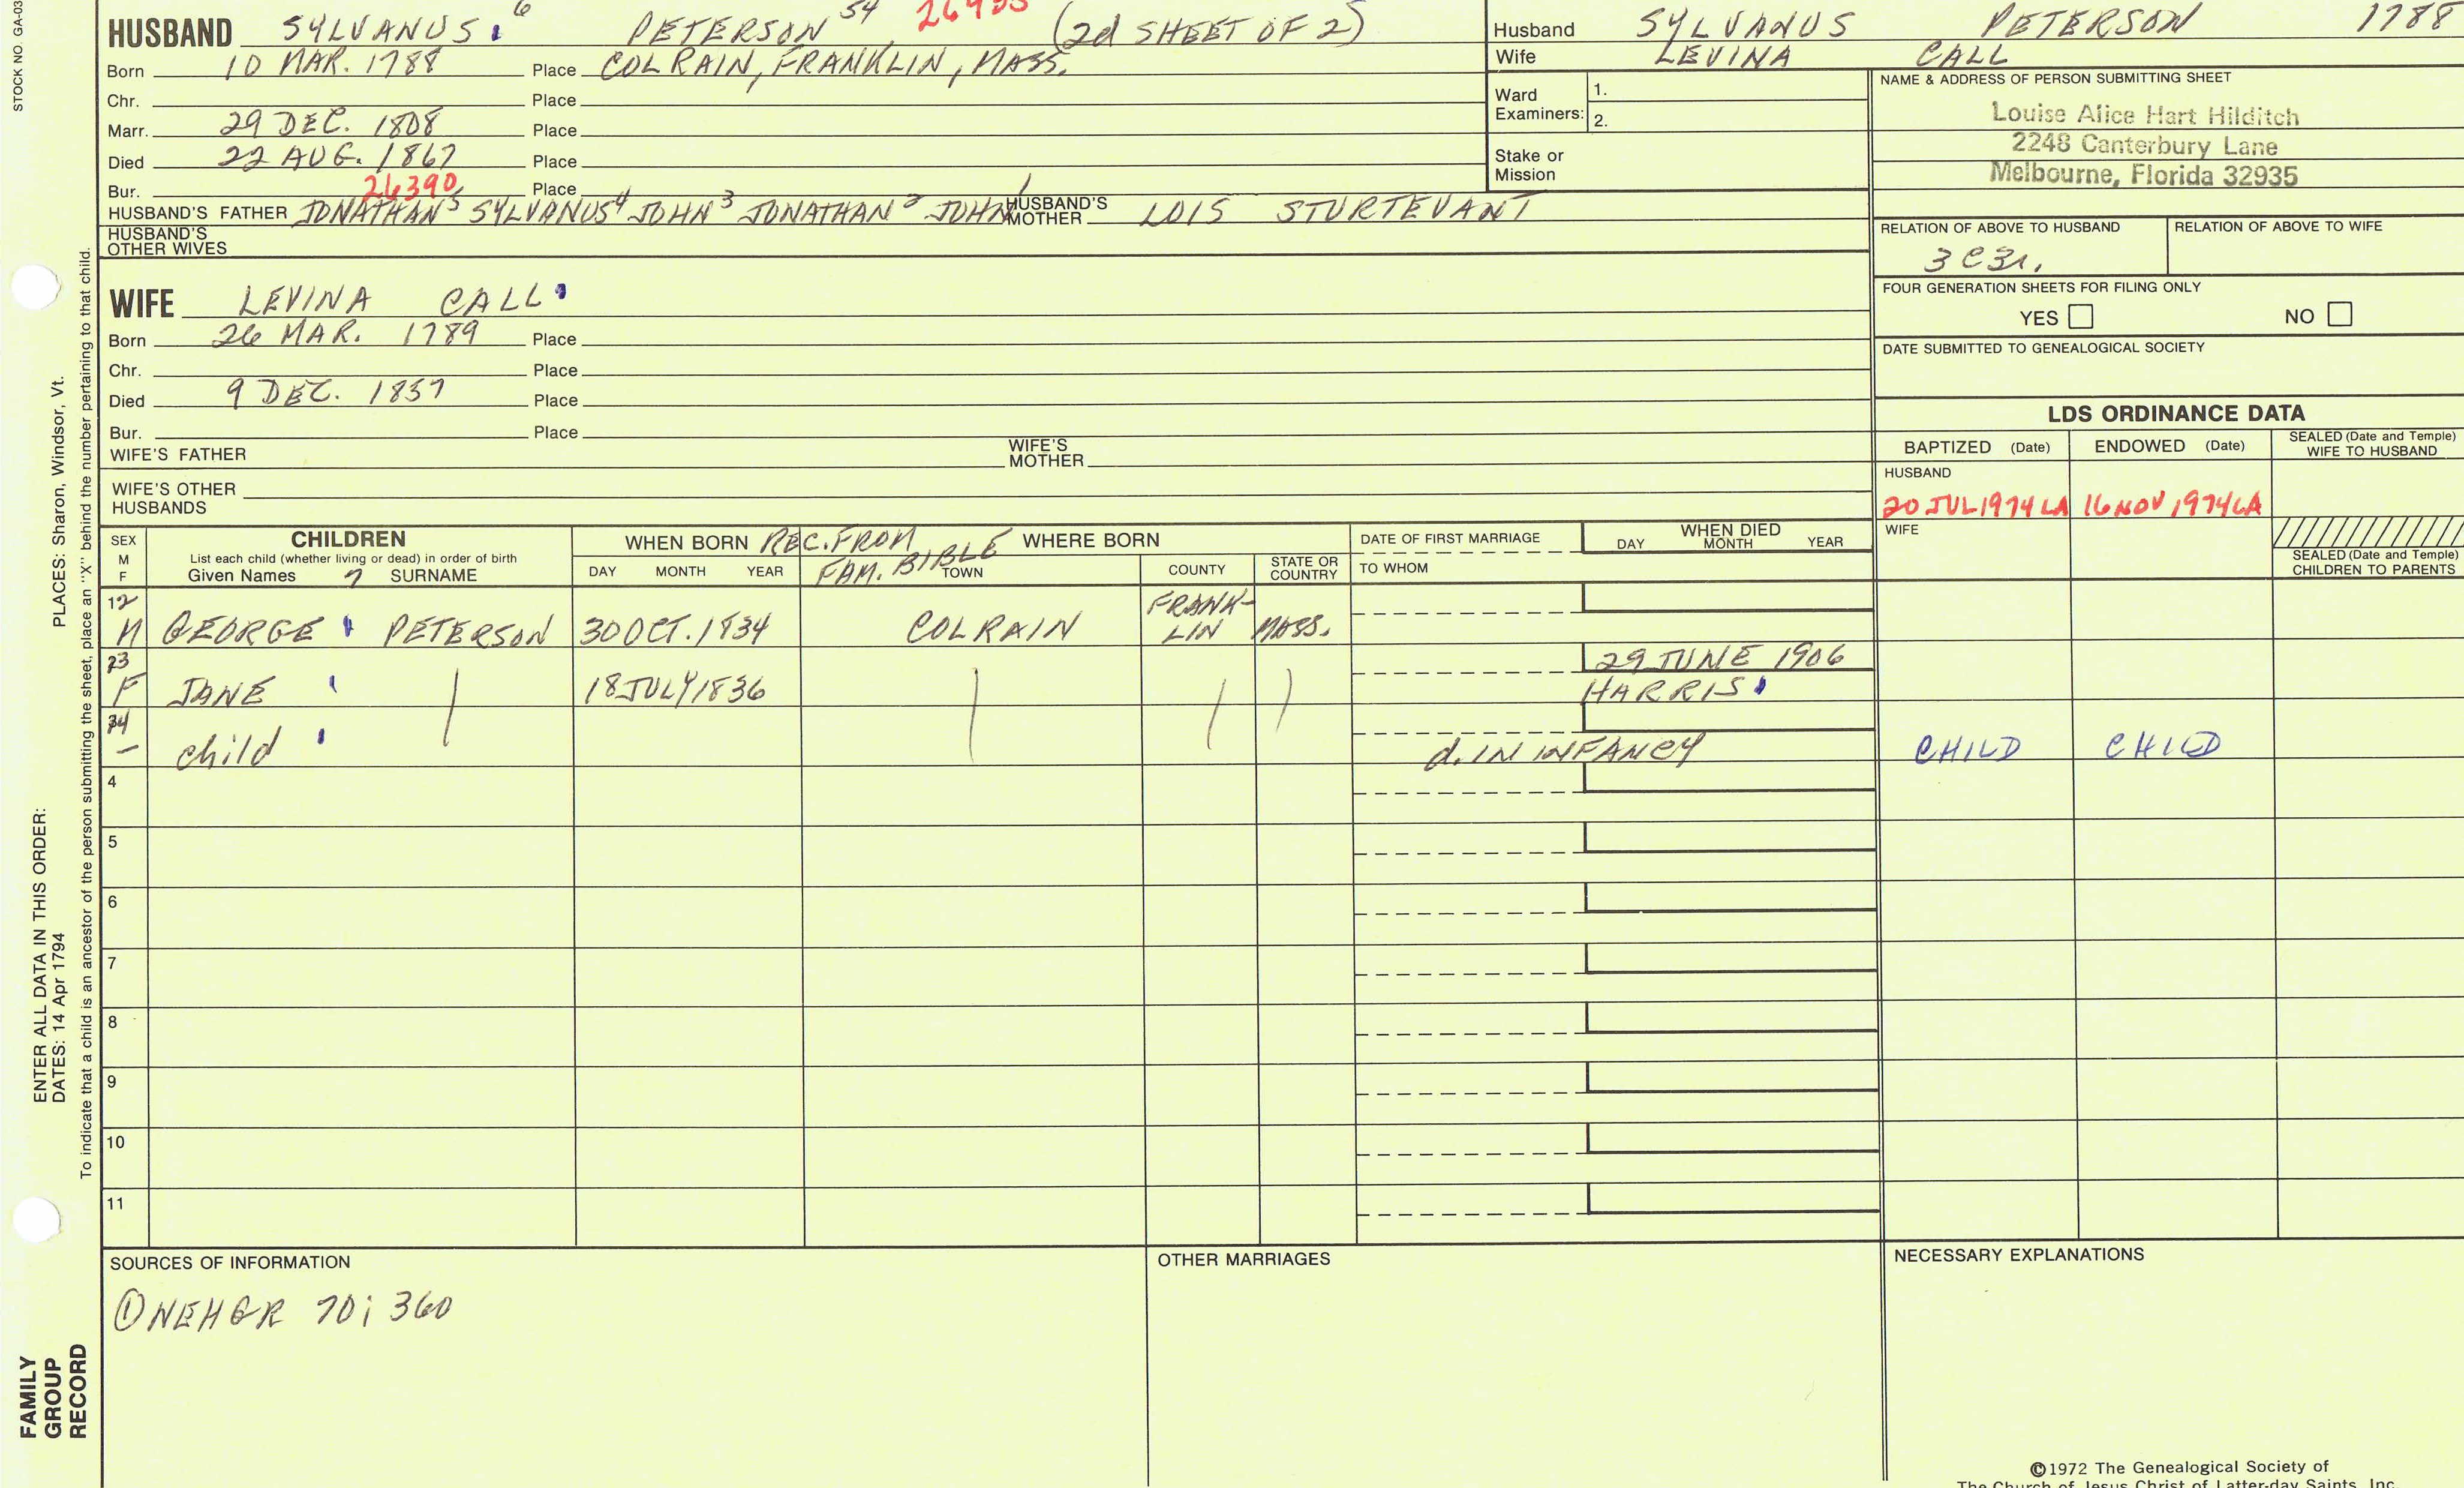 STOCK NO. GA-03
HUSBAND SYLVANUS 6 PETERSON 54 (2d SHEET OF 2)
Born 10 MAR. 1788 Place COLRAIN, FRANKLIN, MASS.
Chr. Place
Marr. 29 DEC. 1808 Place
Died 22 AUG. 1867 Place
Bur. 26390 Place
HUSBAND'S FATHER JONATHAN 5 SYLVANUS 4 JOHN 3 JONATHAN 2 JOHN 1 HUSBAND'S MOTHER LOIS STURTEVANT
HUSBAND'S OTHER WIVES
WIFE LEVINA CALL
Born 26 MAR. 1789 Place
Chr. Place
Died 9 DEC. 1857 Place
Bur. Place
WIFE'S FATHER WIFE'S MOTHER
WIFE'S OTHER HUSBANDS
Husband SYLVANUS PETERSON 1788
Wife LEVINA CALL
Ward Examiners: 1.
2.
Stake or Mission
NAME & ADDRESS OF PERSON SUBMITTING SHEET
Louise Alice Hart Hilditch
2248 Canterbury Lane
Melbourne, Florida 32935
RELATION OF ABOVE TO HUSBAND RELATION OF ABOVE TO WIFE
3C3r.
FOUR GENERATION SHEETS FOR FILING ONLY
YES NO
DATE SUBMITTED TO GENEALOGICAL SOCIETY
LDS ORDINANCE DATA
BAPTIZED (Date) ENDOWED (Date) SEALED (Date and Temple) WIFE TO HUSBAND
HUSBAND
20 JUL 1974 LA 16 NOV 1974 LA
WIFE
SEALED (Date and Temple)
CHILDREN TO PARENTS
SEX M F CHILDREN WHEN BORN REC. FROM FAM. BIBLE WHERE BORN DATE OF FIRST MARRIAGE WHEN DIED
List each child (whether living or dead) in order of birth
Given Names 7 SURNAME DAY MONTH YEAR TOWN COUNTY STATE OR COUNTRY TO WHOM DAY MONTH YEAR
12 M GEORGE PETERSON 30 OCT. 1834 COLRAIN FRANK-LIN MASS.
23 F JANE 18 JULY 1836 29 JUNE 1906
HARRIS
34 – child d. IN INFANCY CHILD CHILD
4
5
6
7
8
9
10
11
SOURCES OF INFORMATION OTHER MARRIAGES NECESSARY EXPLANATIONS
① NEHGR 70; 360
©1972 The Genealogical Society of
The Church of Jesus Christ of Latter-day Saints, Inc.
ENTER ALL DATA IN THIS ORDER:
DATES: 14 Apr 1794 PLACES: Sharon, Windsor, Vt.
To indicate that a child is an ancestor of the person submitting the sheet, place an "X" behind the number pertaining to that child.
FAMILY
GROUP
RECORD